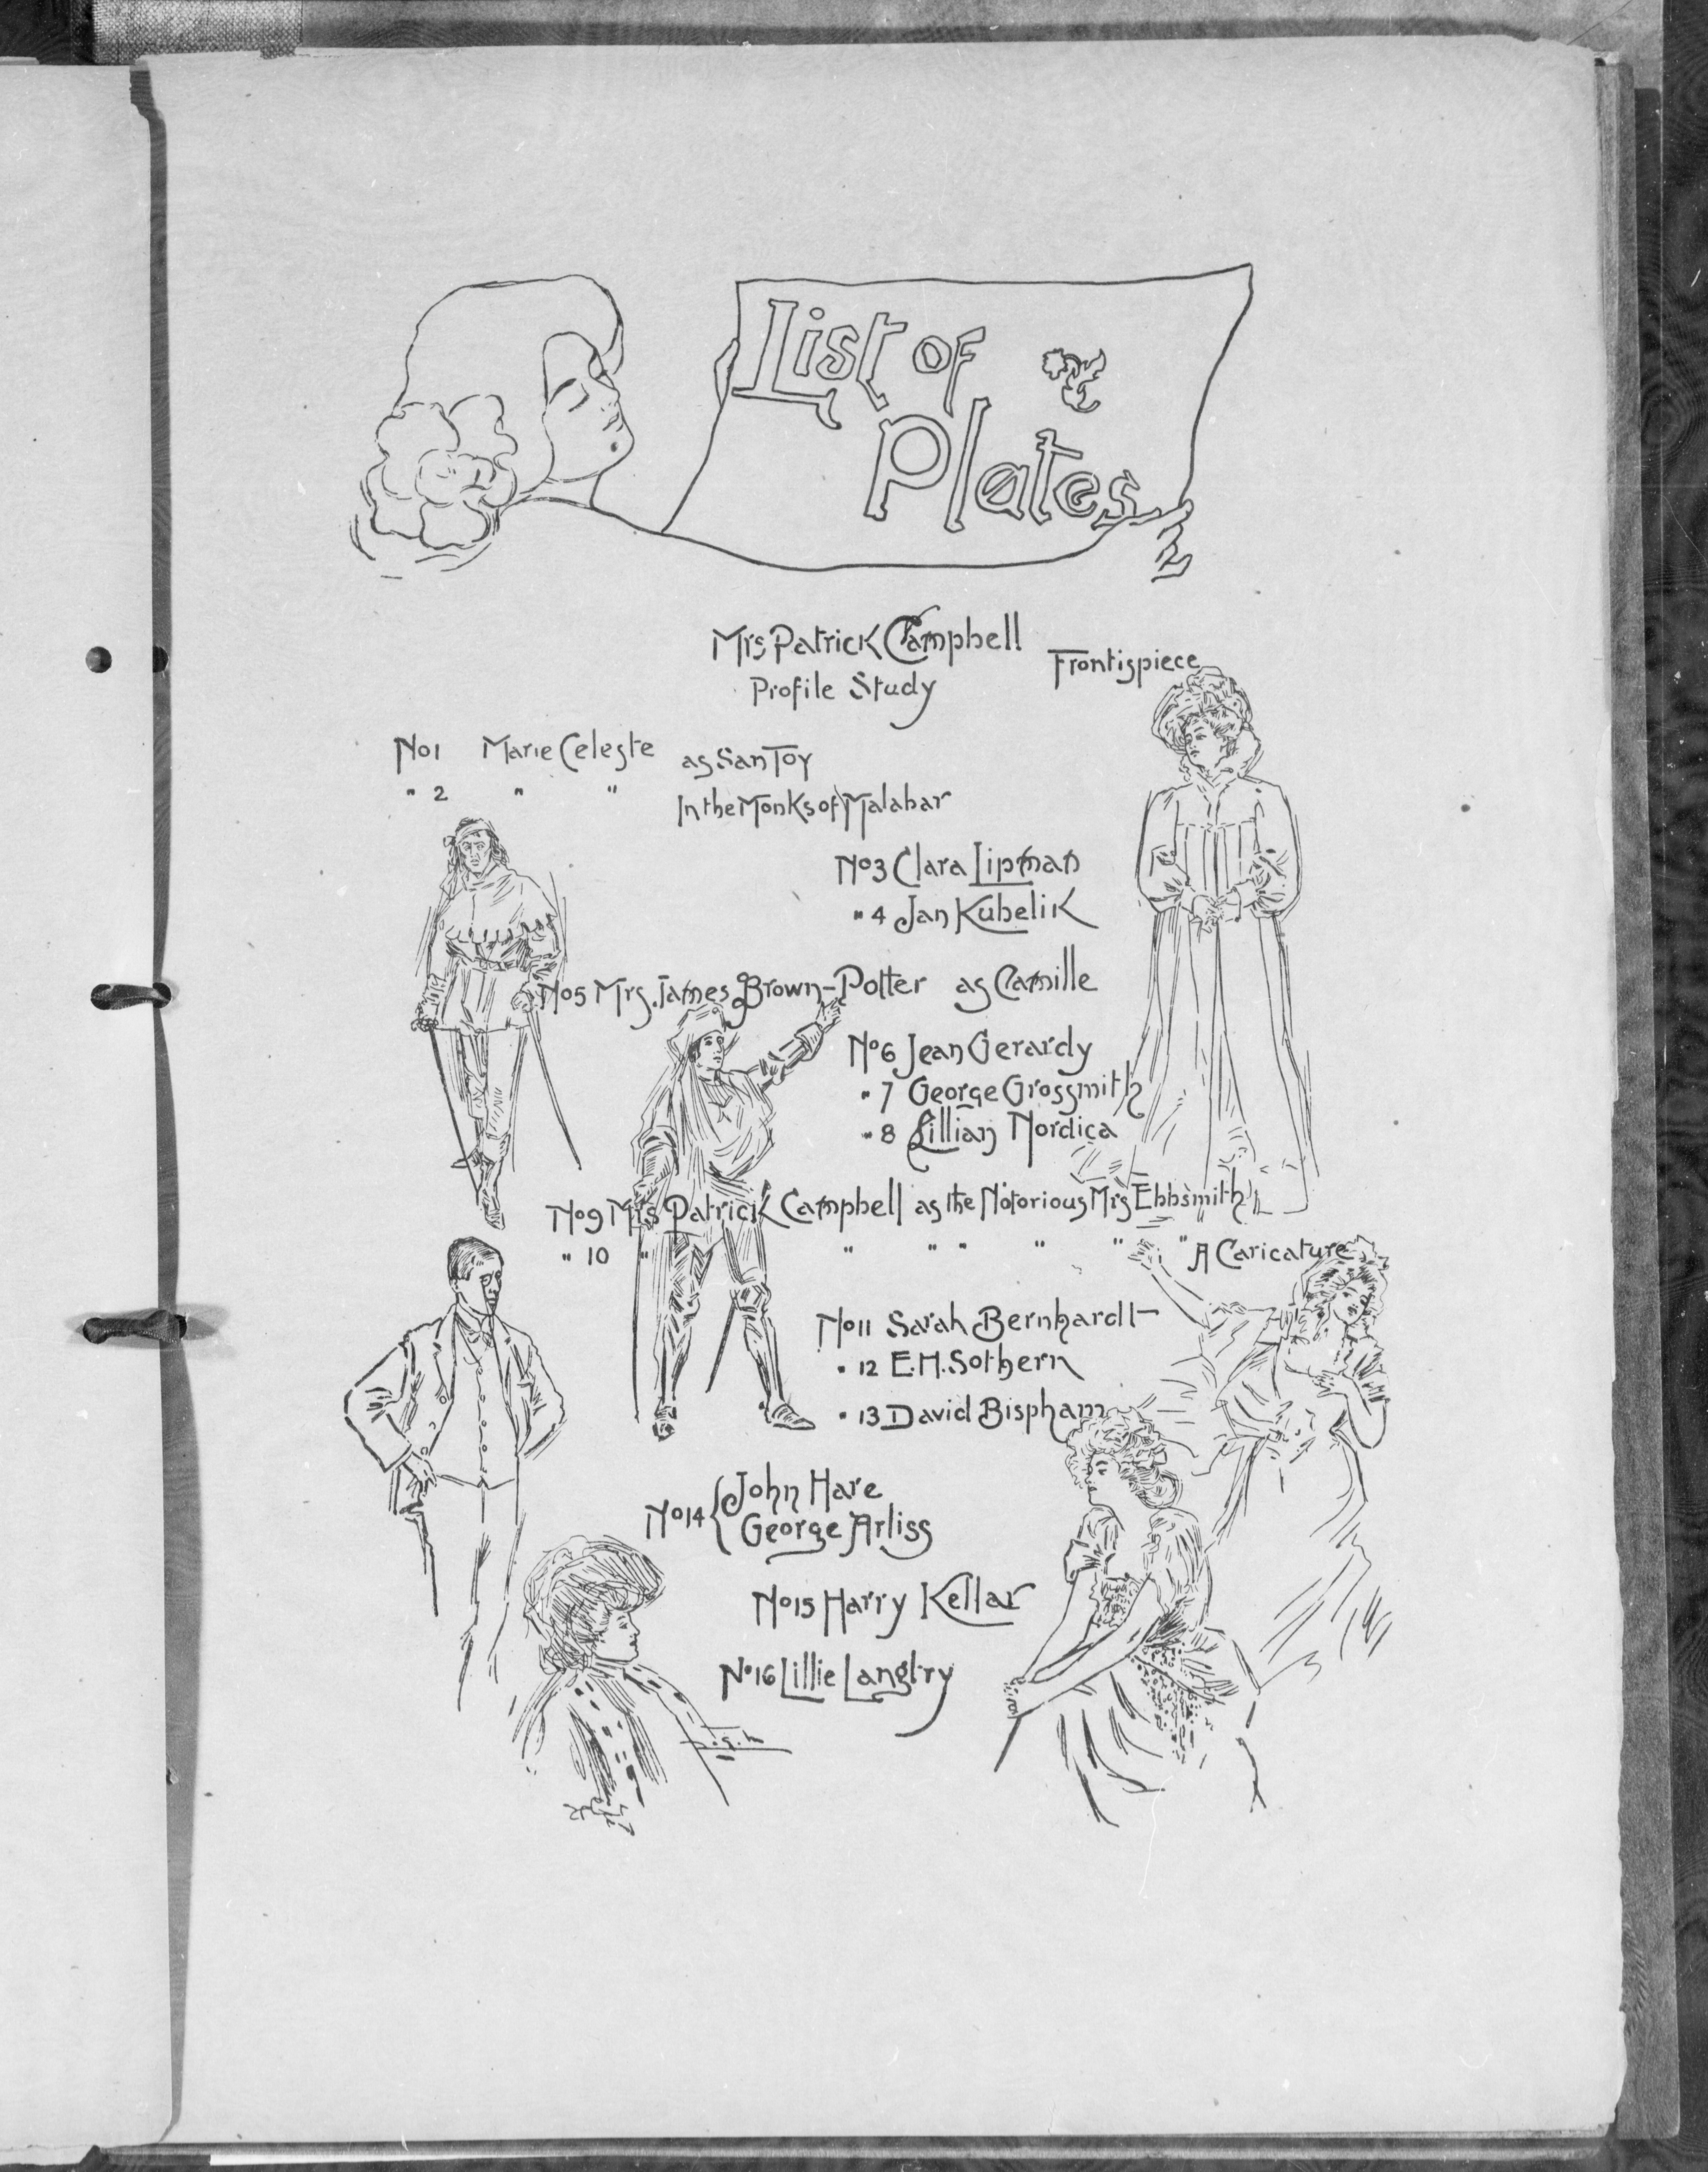 List of
Plates
Mrs Patrick Campbell
Profile Study
Frontispiece
No 1 Marie Celeste as San Toy
" 2 " " In the Monks of Malabar
No 3 Clara Lipman
" 4 Jan Kubelik
No 5 Mrs. James Brown-Potter as Camille
No 6 Jean Gerardy
" 7 George Grossmith
" 8 Lillian Nordica
No 9 Mrs Patrick Campbell as the Notorious Mrs Ebbsmith
" 10 " " " " " " " A Caricature
No 11 Sarah Bernhardt
" 12 E. H. Sothern
" 13 David Bispham
No 14 { John Hare
George Arliss
No 15 Harry Kellar
No 16 Lillie Langtry